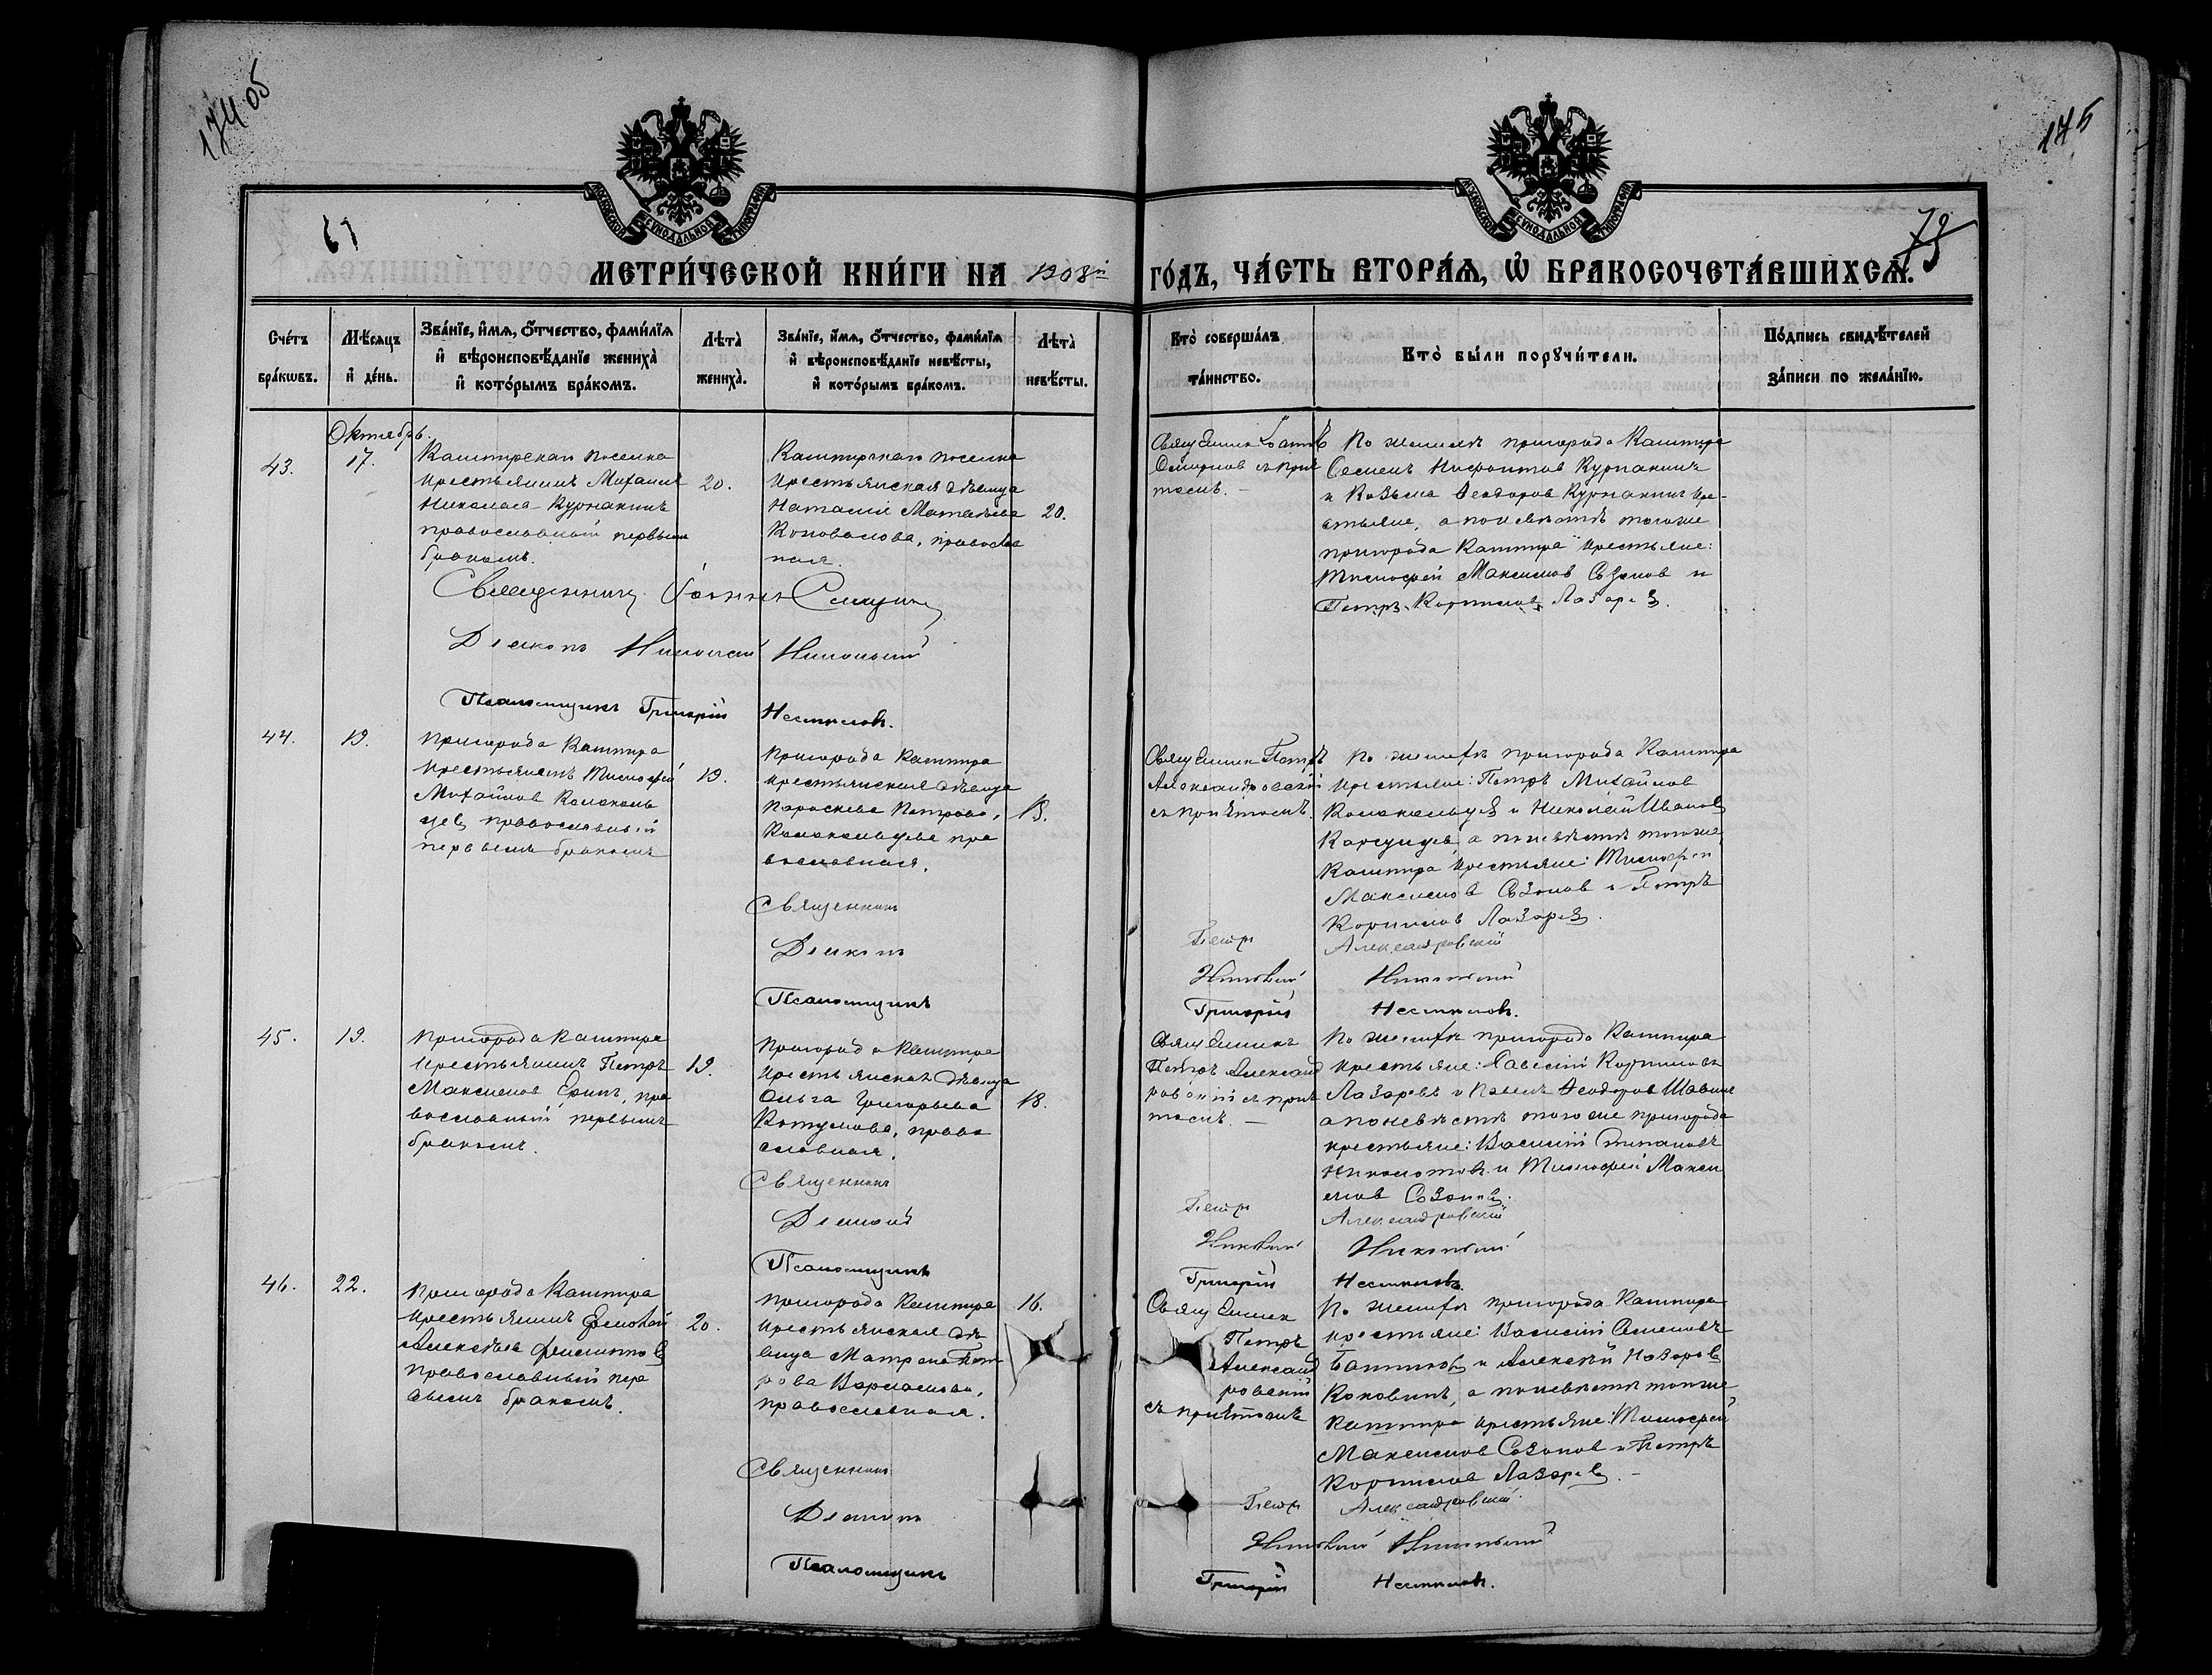 174 об
175
61
79
МОСКОВСКОЙ СУНОДАЛЬНОЙ ТИПОГРАФІИ
МОСКОВСКОЙ СУНОДАЛЬНОЙ ТИПОГРАФІИ
МЕТРИ́ЧЕСКОЙ КНИ́ГИ НА 1908й ГО́ДЪ, ЧА́СТЬ ВТОРА́Ѧ, Ѽ БРАКОСОЧЕТА́ВШИХСѦ.
Сче́тъ бра́кѡвъ.
Мѣ́сяцъ и҆ де́нь.
Зва́нїе, и҆́мѧ, ѻ҆́тчество, фами́лїѧ и҆ вѣроисповѣ́данїе жениха̀ и҆ кото́рымъ бра́комъ.
Лѣ́та жениха̀.
Зва́нїе, и҆́мѧ, ѻ҆́тчество, фами́лїѧ и҆ вѣроисповѣ́данїе невѣ́сты, и҆ кото́рымъ бра́комъ.
Лѣта̀ невѣ́сты.
Кто̀ соверша́лъ та́инство.
Кто̀ бы́ли порꙋчи́тели.
По́дпись свидѣ́телей за́писи по жела́нїю.
Октябрь.
43.
17.
Каштирскаго поселка
крестьянинъ Михаилъ
Николаев Курнакинъ
православный первымъ
бракомъ.
20.
Каштирскаго поселка
крестьянская дѣвица
Наталія Матвѣева
Коновалова, православ
ная.
20.
Священникъ Іоаннъ
Смирнов съ прич
томъ. —
По женихѣ пригорода Каштира
Семенъ Нифонтов Курнакинъ
и Козьма Ѳеодоров Курнакинъ кре-
стьяне, а по невѣстѣ тогоже
пригорода Каштира крестьяне:
Тимофей Максимов Созонов и
Петръ Корнилов Лазарев.
Священникъ Іоаннъ Смирнов
Діаконъ Николай Никольский
Псаломщикъ Григорій Несмѣловъ.
44.
19.
Пригорода Каштира
крестьянинъ Тимофей
Михайлов Колоколь
цев православный
первымъ бракомъ
19.
Пригорода Каштира
крестьянская дѣвица
Параскева Петрова,
Колокольцева пра
вославная.
18.
Священник Петръ
Александровскій
съ причтомъ.
По женихѣ пригорода Каштира
крестьяне: Петръ Михайлов
Колокольцев и Николай Иванов
а по невѣстѣ тогоже
Каштира крестьяне: Тимофей
Максимов Созонов и Петръ
Корнилов Лазарев.
Священникъ Петръ Александровскій
Діаконъ Николай Никольский
Псаломщикъ Григорій Несмѣловъ.
45.
19.
Пригорода Каштира
крестьянинъ Петръ
Максимов Еринъ, пра
вославный первымъ
бракомъ.
19.
Пригорода Каштира
крестьянская дѣвица
Ольга Григорьева
православная.
18.
Священникъ
Петръ Александ
ровскій съ прич
томъ. —
По женихѣ пригорода Каштира
крестьяне: Савелій Корнилов
Лазаревъ и Павелъ Ѳеодоров
а по невѣстѣ того же пригорода
крестьяне: Василій Степановъ
и Тимофей Макси
мов Созонов.
Священникъ Петръ Александровскій
Діаконъ Николай Никольский
Псаломщикъ Григорій Несмѣловъ.
46.
22.
Пригорода Каштира
крестьянинъ
Алексѣев
Православный пер
вымъ бракомъ.
20.
Пригорода Каштира
крестьянская дѣ
вица Матрона Пет
рова Варламова,
православная.
16.
Священник
Петръ
Александ
ровскій
съ причтомъ
По женихѣ пригорода Каштира
крестьяне: Василій Семеновъ
и Алексѣй Назаров
а по невѣстѣ тогоже
Каштира крестьяне: Тимофей
Максимов Созонов и Петръ
Корнилов Лазарев. —
Священникъ Петръ Александровскій
Діаконъ Николай Никольский
Псаломщикъ Григорій Несмѣловъ.